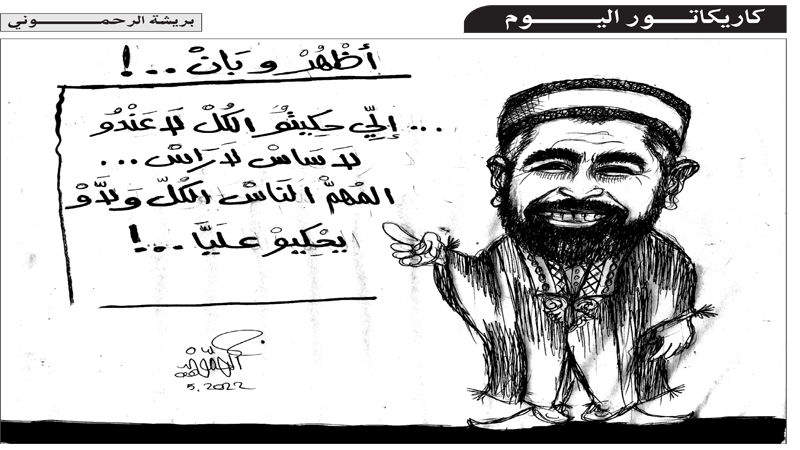 كاريكاتور اليوم
بريشة الرحموني
أظْهُرْ وبَانْ...!
... إلّي حكيتُو الكُلْ لاَ عَنْدُو
لاَ سَاسْ لاَ رَاسْ...
المُهمْ النَاسْ الكُلّ وَلاَّوْ
يحْكِيوْ علَيَّا...!
5.2022